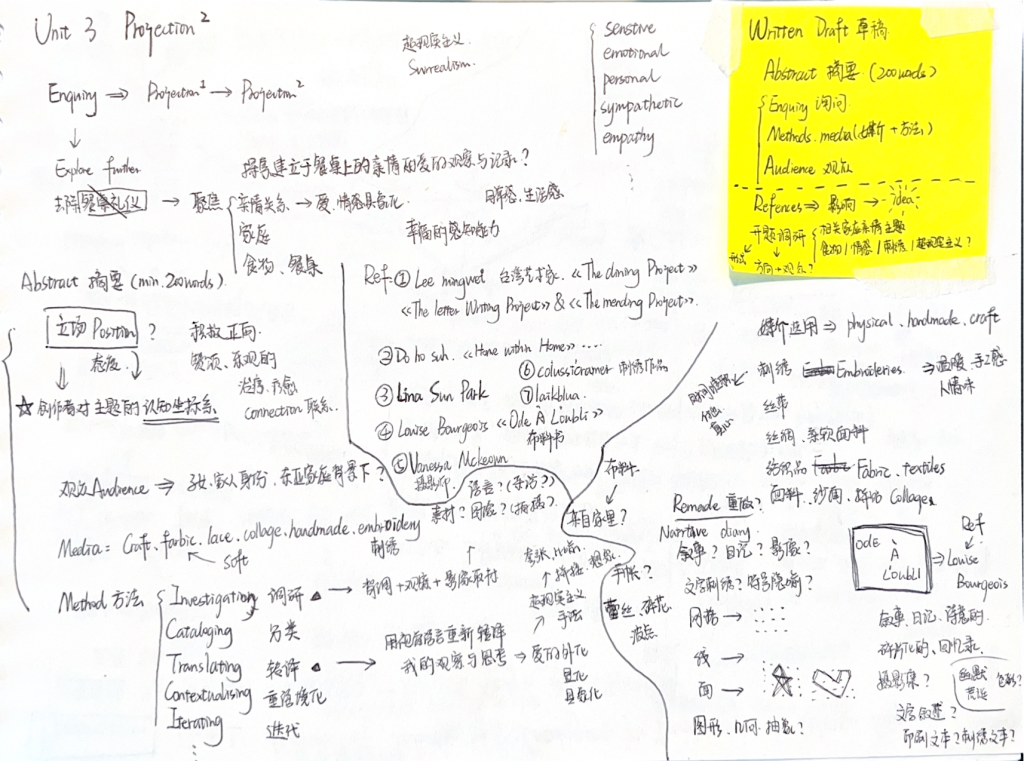 Unit 3 Projection²
Enquiry ⇒ Projection¹ → Projection²
↓
Explore further
去除餐桌礼仪 → 聚焦
亲情关系 → 爱、情感具象化
家庭
食物、餐桌
超现实主义
Surrealism.
senstive
emotional
personal
sympathetic
empathy
⋮
探寻建立于餐桌上的亲情的爱的观察与记录?
日常感、生活感
幸福的感知能力
Written Draft 草稿
Abstract 摘要 (200words)
Enquiry 询问
Methods. media(媒介+方法)
Audience 观众
Refences ⇒ 影响 → idea
开题调研
相关家庭亲情主题
食物 / 情感 / 刺绣 / 超现实主义?
方向+观众?
Abstract 摘要 (min. 200words).
立场 Position ?
态度
积极正向.
乐观的
治愈、疗愈
connection 联系.
☆ 创作者对主题的认知坐标系
观众Audience ⇒ 家人身份、东亚家庭背景下?
Media = Craft. farbic. lace. collage. handmade. embroidery
soft
刺绣
Method 方法
Investigation 调研 ▲ → 背调+观察+影像取材
Cataloging 分类
Translating 转译 ▲ → 用视觉语言重新转译
我的观察与思考 ⇒ 爱的外化
显化
具象化
Contextualising 重语境化
Iterating 迭代
⋮
超现实主义
手法
Ref. ① Lee mingwei 台湾艺术家. <<The dining Project>>
<<The letter Writing Project>> & <<The mending Project>>.
② Do ho suh. <<Home within Home>> ....
③ Lina Sun Park
④ Louise Bourgeois <<Ode À L'oubli>>
布料书
⑤ Vanessa Mckeown
摄影师.
⑥ colussicramer 刺绣作品
⑦ laikblua.
语言? (采访?)
素材? 图像? (拍摄?)
媒介选用 ⇒ physical. handmade. craft
刺绣 Embroideries. ⇒ 温暖、手工感
人情味
丝带
丝绸、柔软面料
纺织品 Fabric. textiles
面料、沙网、拼布 Collages
布料
↓
来自家里?
Remade 重做?
Narrative diary.
叙事? 日记? 影像?
手帐?
文字刺绣? 符号隐喻?
蕾丝、碎花
波点
网格 →
线 →
面 →
图形、几何、抽象?
ODE
À
L'OUBLI
Ref
Louise
Bourgeois
叙事、日记、诗意的.
碎片化的、回忆录.
摄影集?
幽默
荒诞
色彩?
文字叙述?
印刷文本? 刺绣文本?